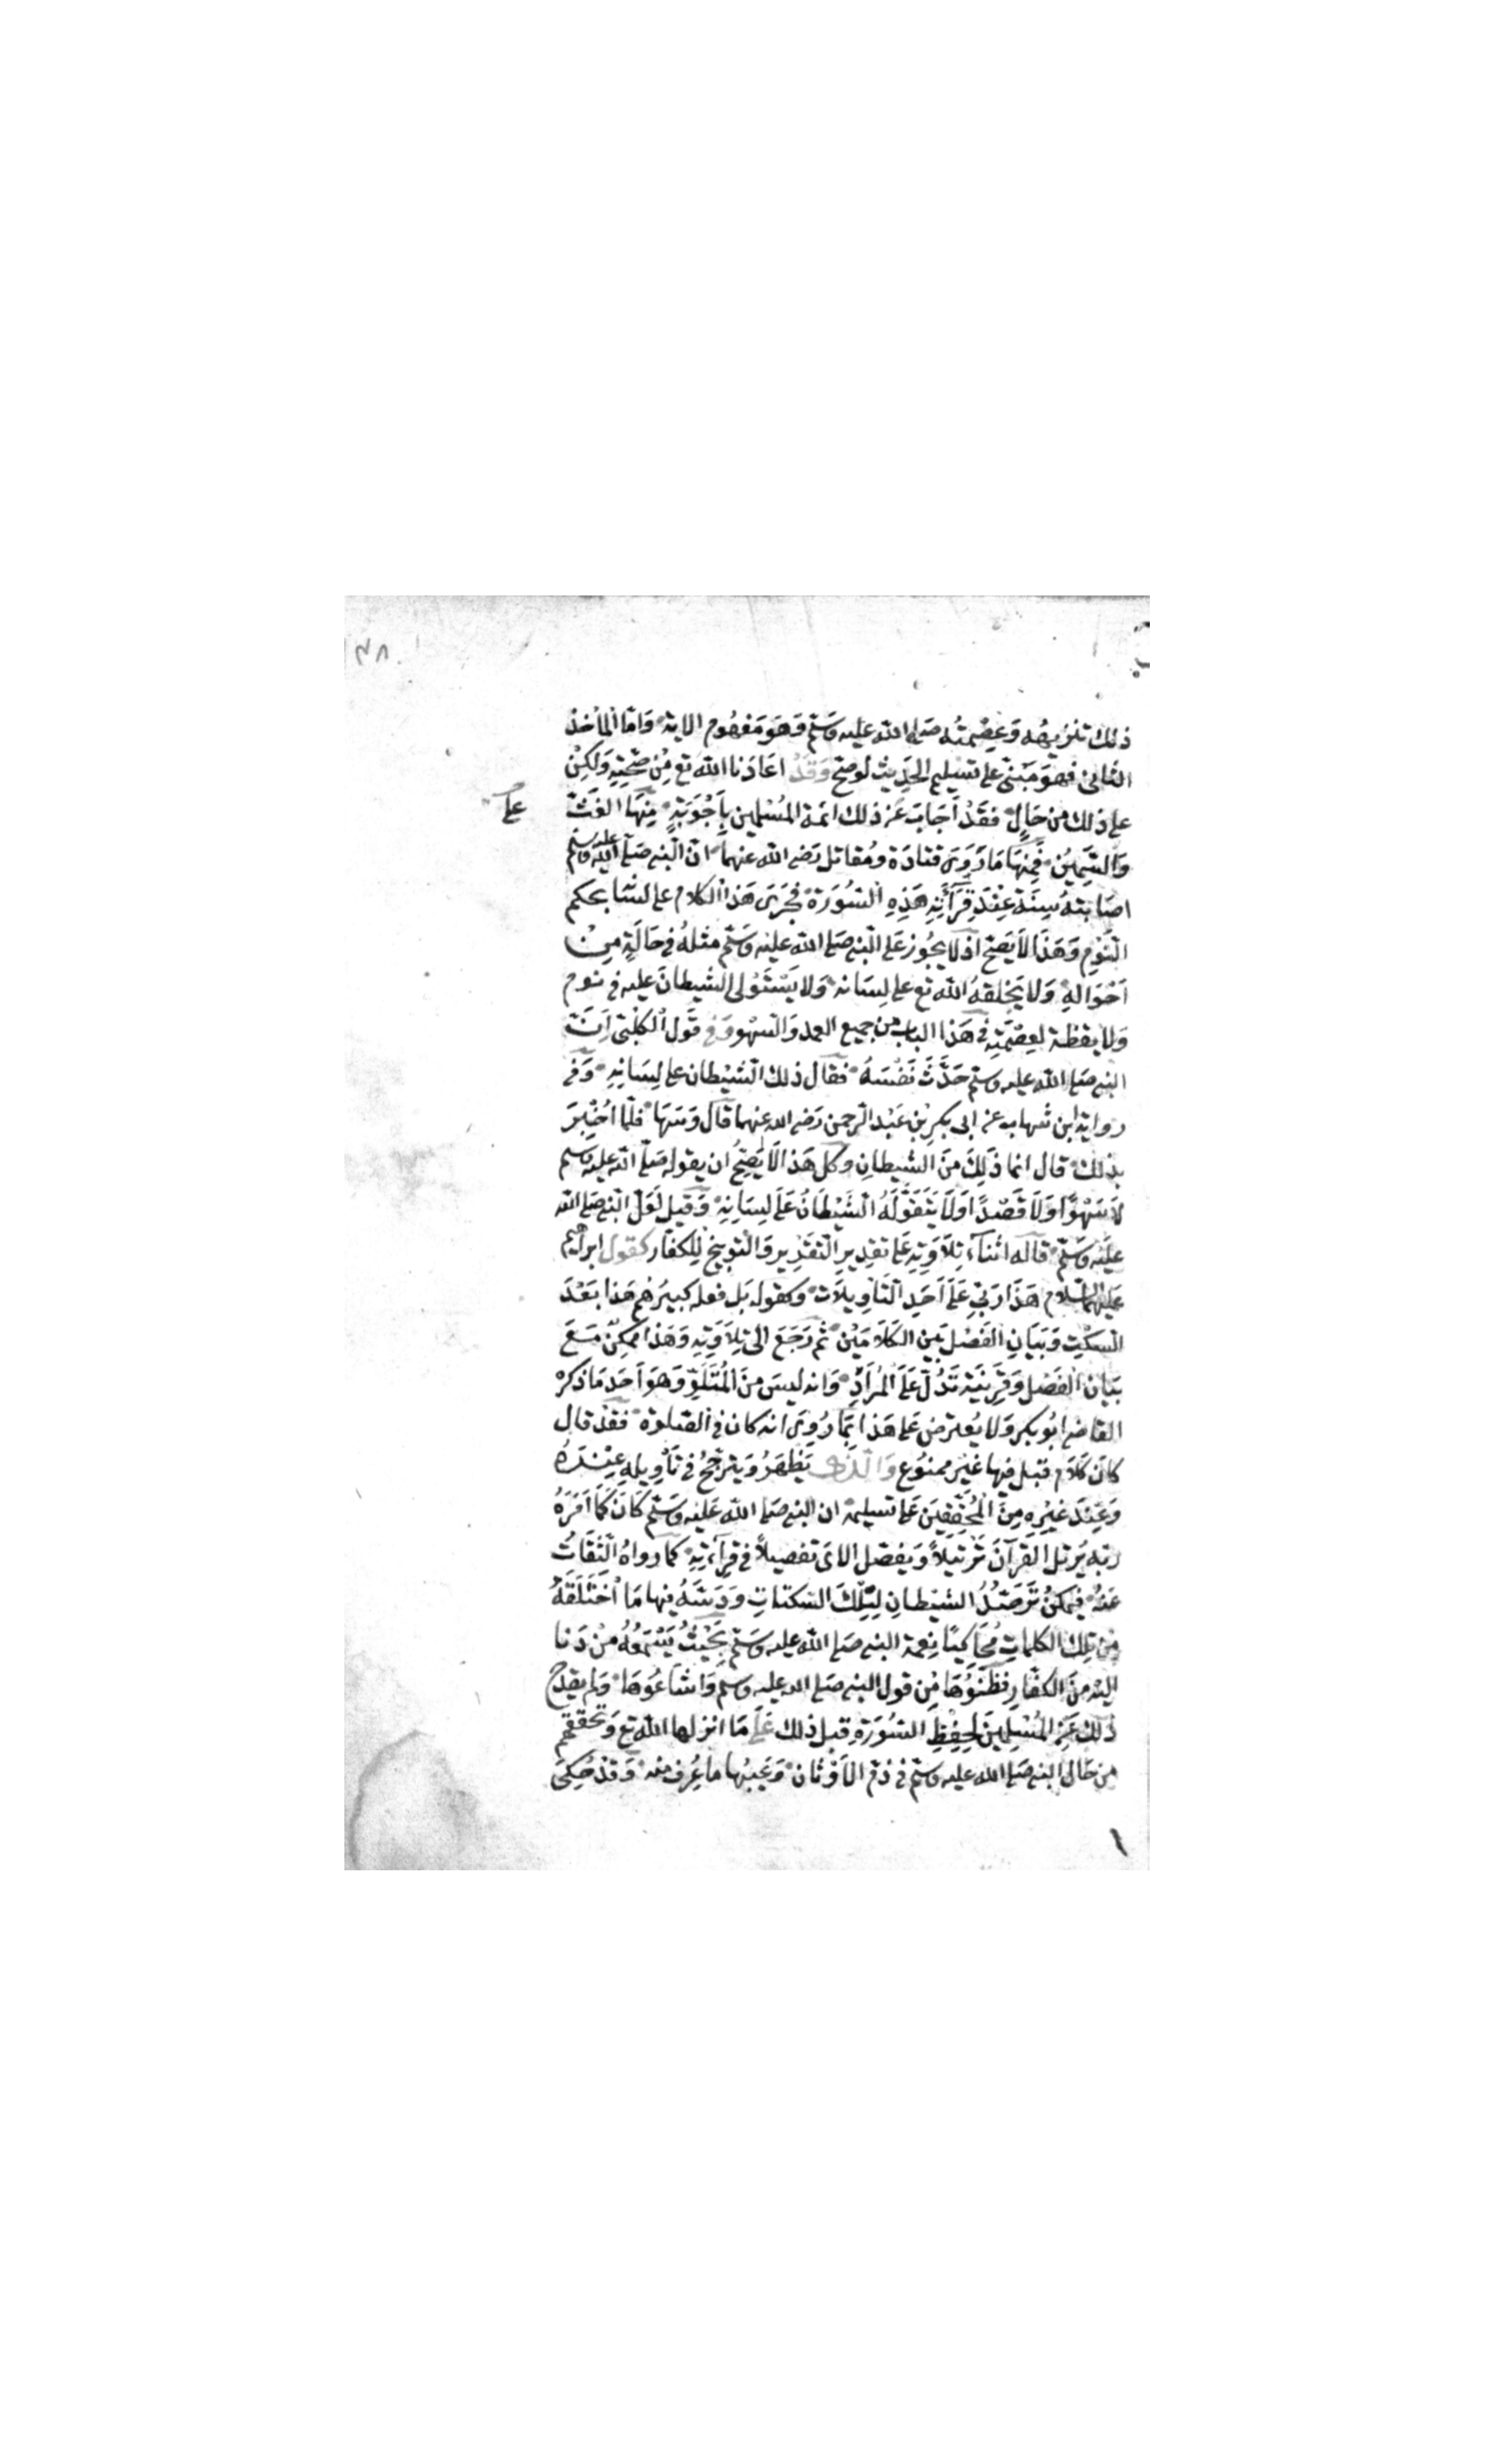 ٣٨
ذلك تنزيهه وَعِصْمتُه صَلى الله عليه وَسَلّم وَهوَ مَفهُوم الاية وَامّا المأخذ
الثانى فهوَ مَبْنىّ على تسْليم الحَدِيث لوصَحّ وَقَدْ اعَاذَنا الله تع مِنْ صِحّتِهِ وَلكِنْ
على ذلك من حَالٍ فقَدْ اَجَابَ عَن ذلك ائمة المُسْلمين بِاَجْوبَةٍ مِنهَا الغَثّ
على
وَالسّمِينُ فمِنهَا مَا رَوَى قتادَة ومُقاتل رَضى الله عنهما انّ النّبى صَلى الله عليه وسَلم
اصَابتهُ سِنَة عِنْدَ قِرَآئَتِهِ هَذِهِ السّورَة فجَرَى هَذا الكلام على لسَانِه بحكم
النّوْمِ وَهَذا لاَ يَصِحّ اذ لا يجُوز عَلى النّبى صَلى الله عليه وَسَلّم مثلهُ فى حَالَةٍ مِنْ
اَحْوَالِهِ وَلا يَخلقهُ الله تع على لِسَانه وَلا يَسْتَوْلى الشيطان عليه فى نوم
وَلا يقظة لعِصْمَتِهِ فى هَذا البابِ من جميع العمد وَالسّهو وَفى قَوْل الكلبىّ اَنّ
النبى صَلى الله عليه وسلم حَدّثَ نَفْسَهُ فقال ذلك الشيْطان على لِسَانِهِ وَفى
رواية ابن شهاب عن ابى بكرِ بْنِ عَبْد الرّحمن رَضى الله عنهما قالَ وَسَهَا فلمّا اُخْبِرَ
بذلك قال انما ذلِكَ مِنَ الشيطانِ وكلّ هَذا لاَ يَصِحّ ان يقوله صَلى الله عليه وسلم
لاَ سَهْوًا وَلاَ قصْدًا وَلاَ يَتَقوّلَهُ الشّيْطَانُ عَلى لِسَانِهِ وَقيل لَعَلّ النّبى صَلى الله
عليْه وَسَلم قاله اثنآءَ تِلاَوَتِهِ عَلى تقدير التقرير وَالتوبيخ لِلكفّار كقول ابراهيم
عليهما السّلام هَذا رَبّى عَلى اَحَدِ التّاويلات وكقوله بَل فعله كبيرُهُم هَذا بَعْدَ
السّكتِ وَبَيَانِ الفَصْل بَيْن الكَلاَمَيْن ثمّ رَجَعَ الى تِلاَوَتِهِ وَهَذا ممكنٌ مَعَ
بيَان الفَصْل وَقَرِينَة تَدُلّ عَلى المُرَادِ وَانه ليسَ مِنَ المُتَلوّ وَهوَ اَحَد مَا ذكرهُ
القاضى ابُو بكر وَلا يُعترض عَلى هَذا بمَا رُوىَ انه كان فى الصّلوة فقدْ قال
كانَ كَلاَم قبل فيها غيْر ممنوُع وَالّذى يَظْهَرُ وَيترَجّحُ فى تَأوِيلِهِ عِنْدَهُ
وَعِنْدَ غيْرِهِ مِنَ المُحَقّقينَ عَلى تسليمه ان النبى صَلى الله عَليه وَسَلم كانَ كَمَا اَمَرَهُ
رَبّه يُرَتل القرآنَ تَرْتيلاً وَيفصّل الاىَ تفصيلاً فى قِرآءَتِهِ كما رواهُ الثّقَاتُ
عَنْهُ فيُمكِنُ تَرَصّدُ الشيْطانِ لِتِلْكَ السّكتاتِ وَدَسّهُ فيها مَا اخْتَلقَهُ
مِن تِلكَ الكلماتِ مُحَاكيًا نغمة النبى صَلى الله عليه وسلم بحَيْثُ يَسْمَعُهُ مَنْ دَنا
اليْه مِنَ الكفّارِ فظنوُهَا مِنْ قول النبى صَلى الله عليه وسلم وَاشَاعُوَهَا وَلم يقدَح
ذلك عِنْدَ المُسْلِمينَ لِحِفظِ السُّورَةِ قبل ذلك عَلَى مَا انزلها الله تع وَتحققهم
مِن حَال النبى صَلى الله عليه وسلم فى ذمّ الاَوْثان وَعَيْبُها ما عُرفَ منه وَقدْ حُكِىَ